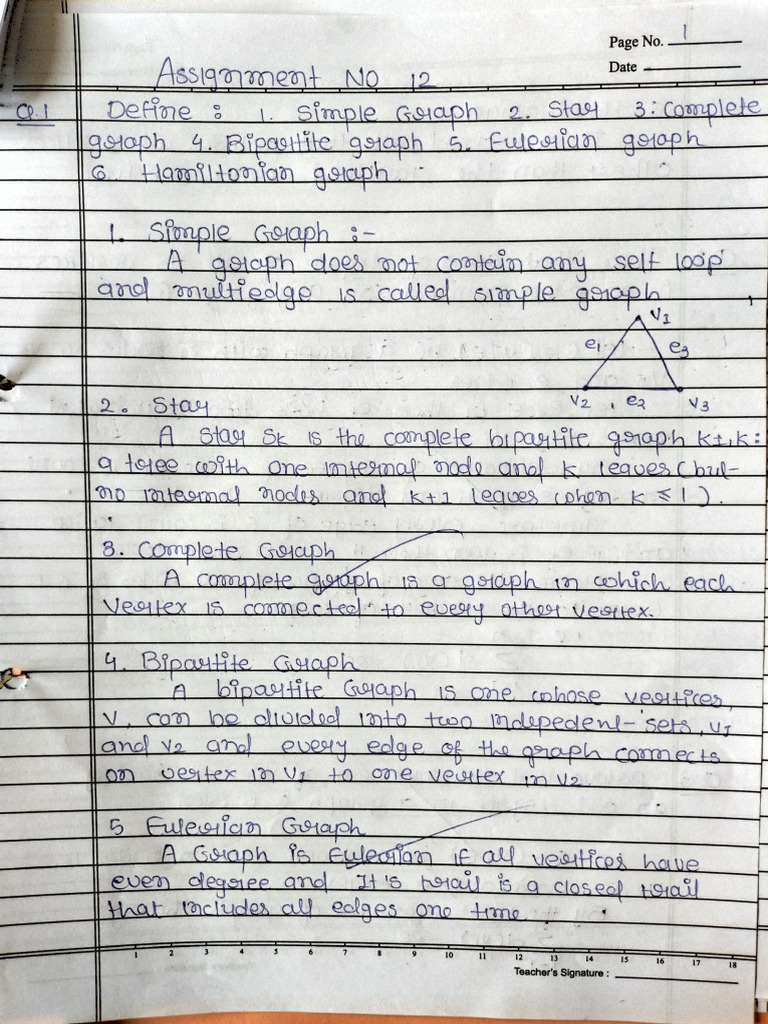 Page No. 1
Date
Assignment NO 12
Q.1 Define : 1. Simple Graph 2. Star 3: Complete
graph 4. Bipartite graph 5. Eulerian graph
6. Hamiltonian graph
1. Simple Graph :-
A graph does not contain any self loop
and multiedge is called simple graph
v1
e1 e3
v2 e2 v3
2. Star
A star Sk is the complete bipartite graph K1,k:
a tree with one internal node and k leaves (but
no internal nodes and k+1 leaves when k ≤ 1).
3. Complete Graph
A complete graph is a graph in which each
vertex is connected to every other vertex.
4. Bipartite Graph
A bipartite Graph is one whose vertices,
V, can be divided into two indepedent sets, V1
and V2 and every edge of the graph connects
on vertex in V1 to one vertex in V2
5 Eulerian Graph
A Graph is Eulerian if all vertices have
even degree and It's trail is a closed trail
that includes all edges one time.
1 2 3 4 5 6 7 8 9 10 11 12 13 14 15 16 17 18
Teacher's Signature :